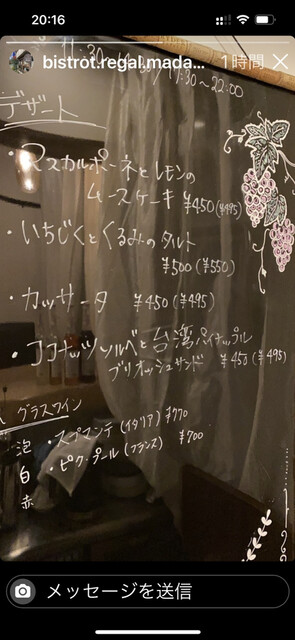 20:16
bistrot.regal.mada... 1時間
11:30～ 17:30～22:00
デザート
・マスカルポーネとレモンの
ムースケーキ ¥450(¥495)
・いちじくとくるみのタルト
¥500(¥550)
・カッサータ ¥450(¥495)
・ココナッツソルベと台湾パイナップル
ブリオッシュサンド ¥450(¥495)
グラスワイン
泡 ・スプマンテ(イタリア)¥770
白 ・ピクプール(フランス) ¥700
赤
メッセージを送信